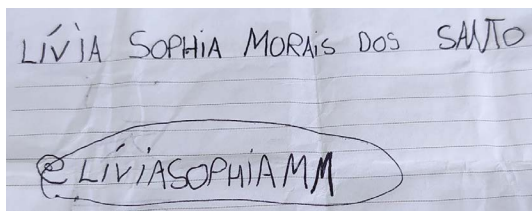 LÍVIA SOPHIA MORAIS DOS SANTO
@LÍVIASOPHIAMM